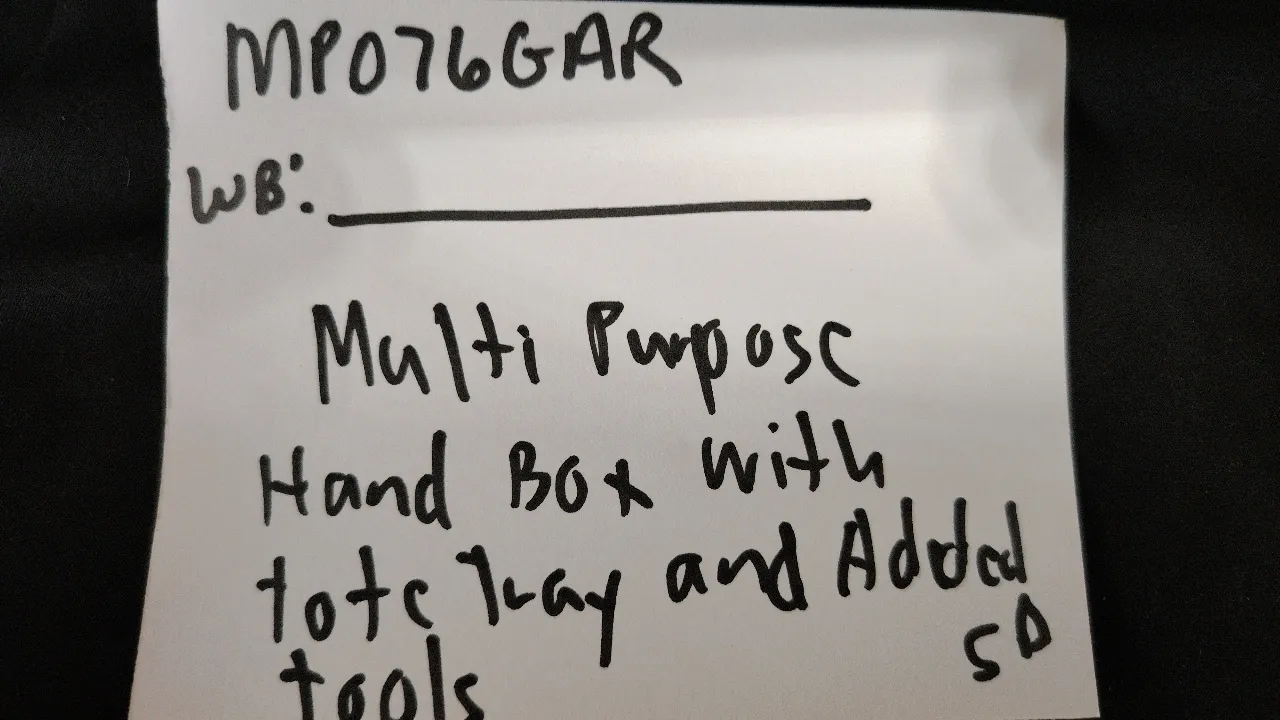 MP076GAR
WB:
Multi Purpose
Hand Box with
tote Tray and Added
SD
tools